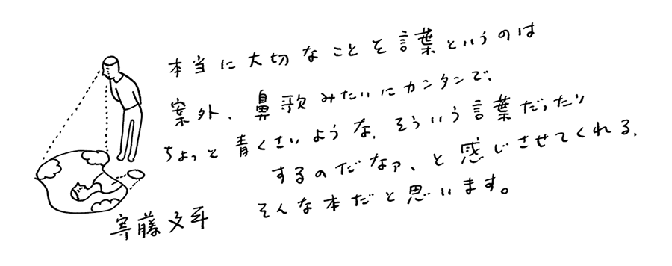 本当に大切なことを言葉というのは
案外、鼻歌みたいにカンタンで、
ちょっと青くさいような、そういう言葉だったり
するのだなァ、と感じさせてくれる、
そんな本だと思います。
寄藤文平